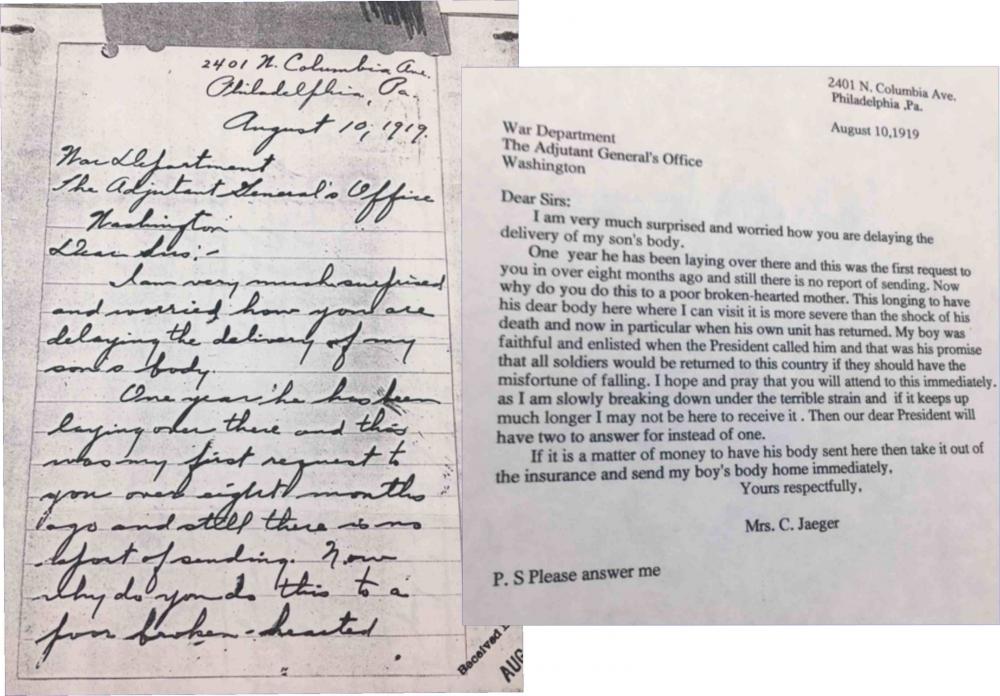 2401 N. Columbia Ave.
Philadelphia, Pa.
August 10, 1919.
War Department
The Adjutant General's Office
Washington
Dear Sirs:-
I am very much surprised
and worried how you are
delaying the delivery of my
son's body.
One year he has been
laying over there and this
was my first request to
you over eight months
ago and still there is no
report of sending. Now
why do you do this to a
poor broken-hearted
Received
AUG
2401 N. Columbia Ave.
Philadelphia ,Pa.
August 10,1919
War Department
The Adjutant General's Office
Washington
Dear Sirs:
I am very much surprised and worried how you are delaying the
delivery of my son's body.
One year he has been laying over there and this was the first request to
you in over eight months ago and still there is no report of sending. Now
why do you do this to a poor broken-hearted mother. This longing to have
his dear body here where I can visit it is more severe than the shock of his
death and now in particular when his own unit has returned. My boy was
faithful and enlisted when the President called him and that was his promise
that all soldiers would be returned to this country if they should have the
misfortune of falling. I hope and pray that you will attend to this immediately.
as I am slowly breaking down under the terrible strain and if it keeps up
much longer I may not be here to receive it . Then our dear President will
have two to answer for instead of one.
If it is a matter of money to have his body sent here then take it out of
the insurance and send my boy's body home immediately.
Yours respectfully,
Mrs. C. Jaeger
P. S Please answer me